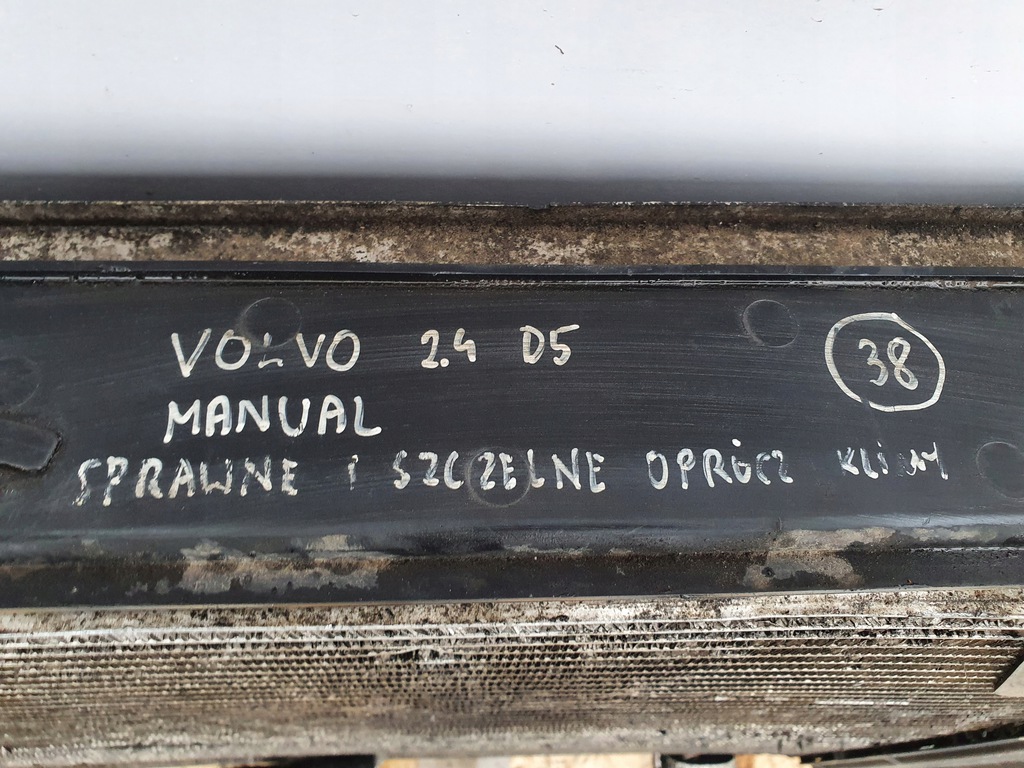 VOLVO 2.4 D5 38
MANUAL
SPRAWNE I SZCZELNE OPRÓCZ KLIMY